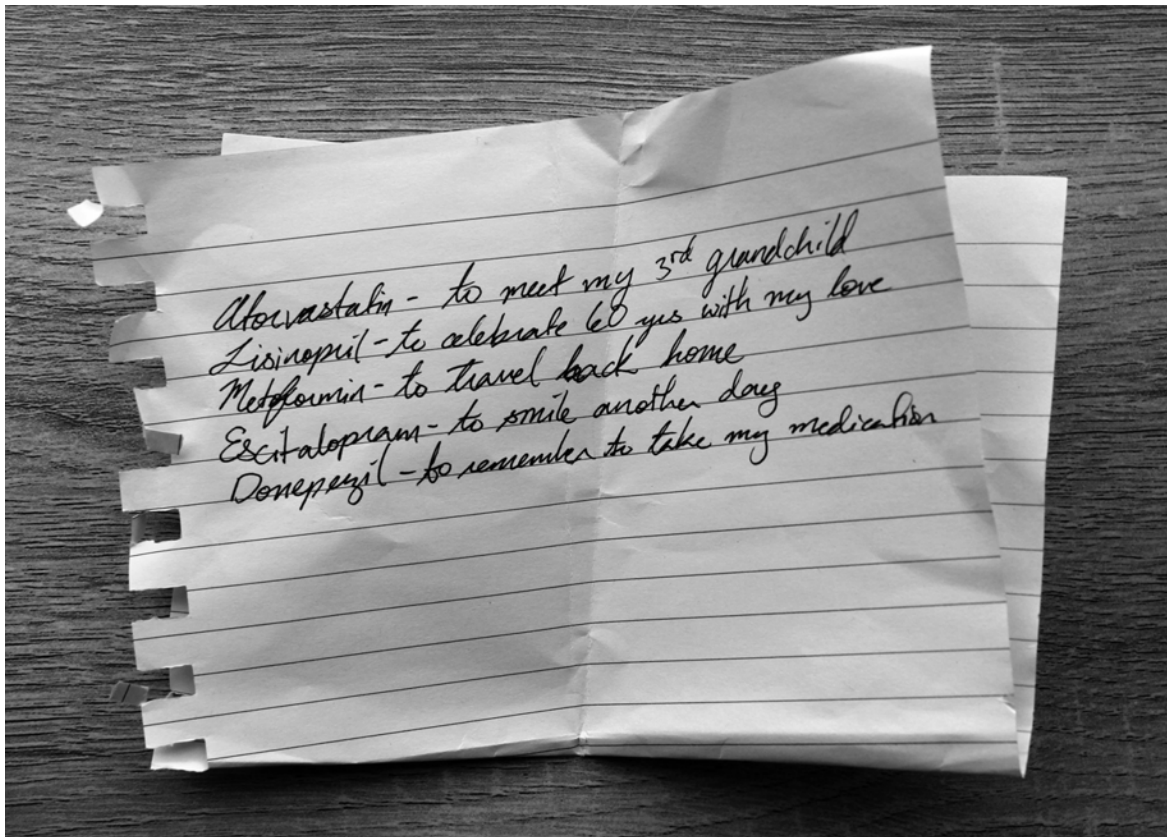 Atorvastatin - to meet my 3rd grandchild
Lisinopril - to celebrate 60 yrs with my love
Metformin - to travel back home
Escitalopram - to smile another day
Donepezil - to remember to take my medication